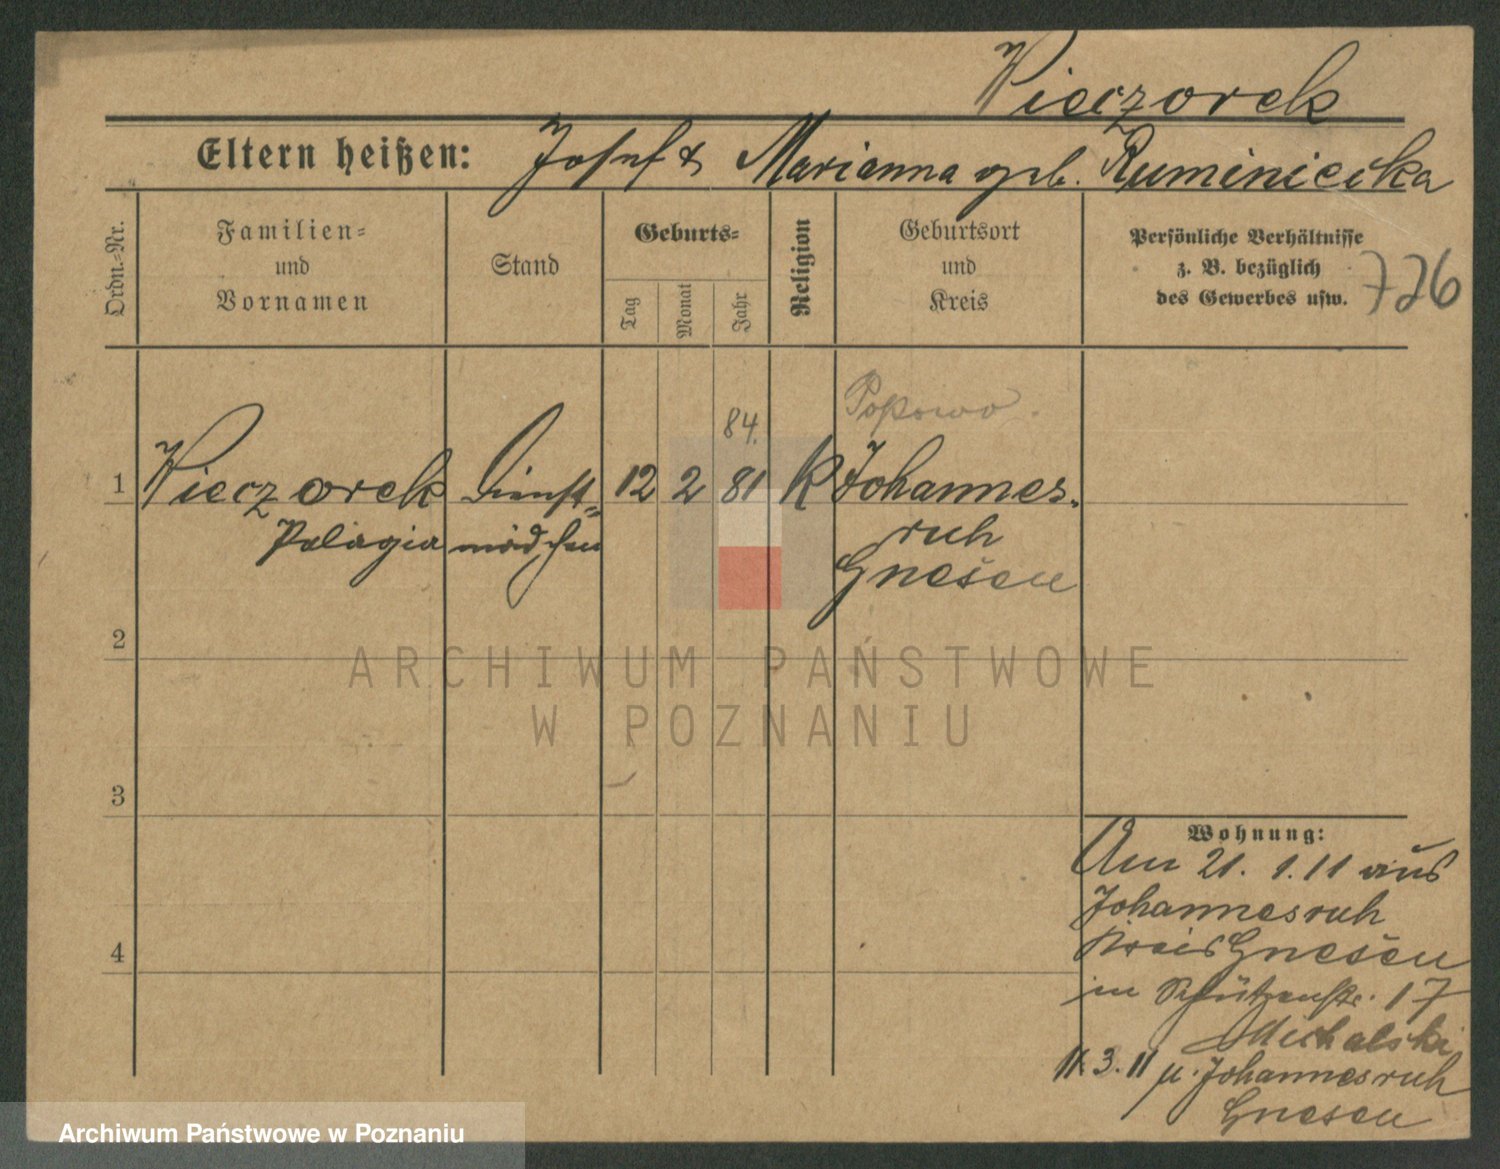 Wieczorek
Eltern heißen: Josef & Marianna geb. Ruminicika
Ordn.-Nr.
Familien-
und
Vornamen
Stand
Geburts-
Tag
Monat
Jahr
Religion
Geburtsort
und
Kreis
Persönliche Verhältnisse
z. B. bezüglich
des Gewerbes usw.
726
Popowo.
84.
1 Wieczorek Dienst- 12 2 81 K Johannes-
Pelagia mädchen ruh
Gnesen
2
ARCHIWUM PAŃSTWOWE
W POZNANIU
3
Wohnung:
Am 21. 1. 11 aus
Johannesruh
Kreis Gnesen
4
in Schützenstr. 17
Michalski
11. 3. 11 n. Johannesruh
Gnesen
Archiwum Państwowe w Poznaniu